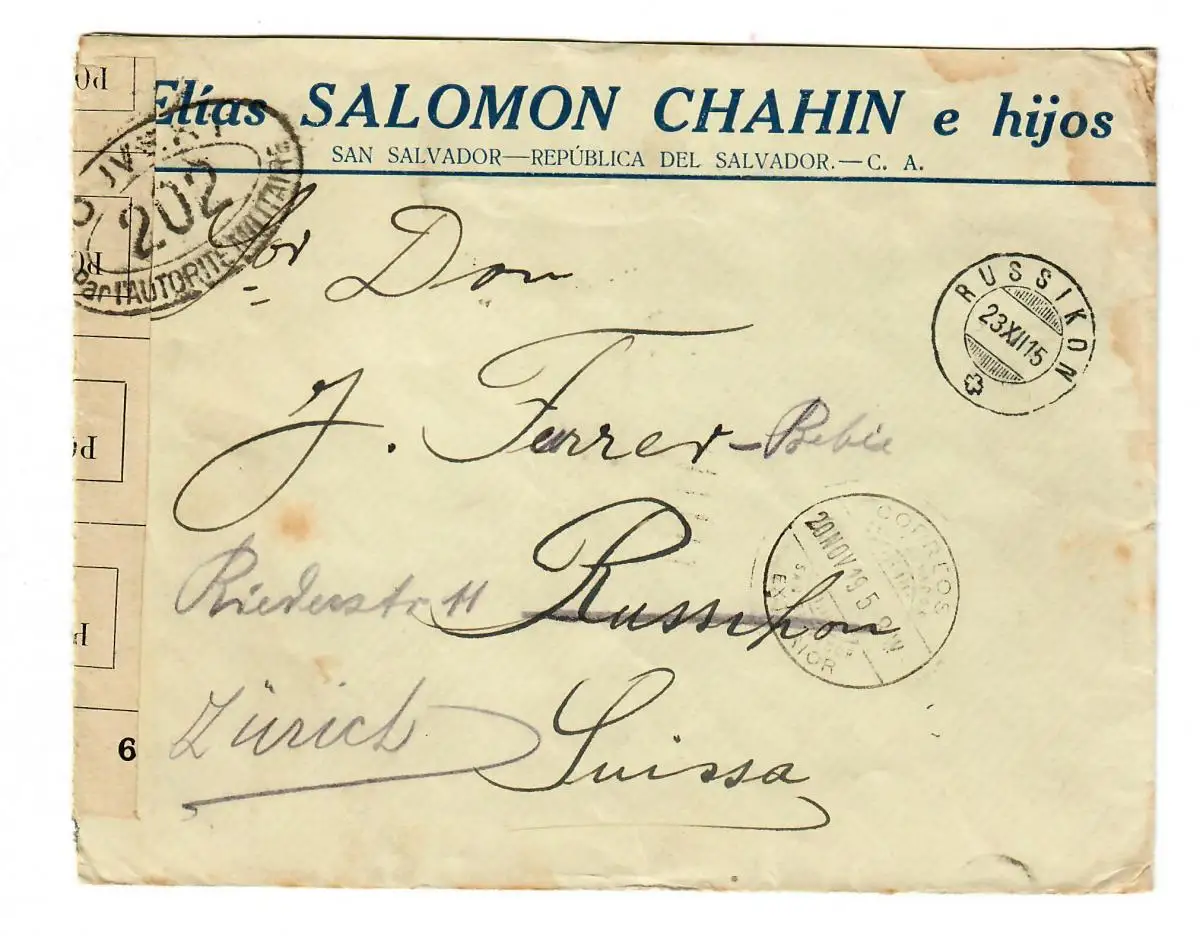 Elías SALOMON CHAHIN e hijos
SAN SALVADOR—REPÚBLICA DEL SALVADOR.—C. A.
202
par l'AUTORITÉ MILITAIRE
Don
RUSSIKON
23 XII 15
J. Furrer - Bebie
CORREOS
20 NOV 19 5
EXTERIOR
Riederstr 11 Russikon
Zürich Suissa
6